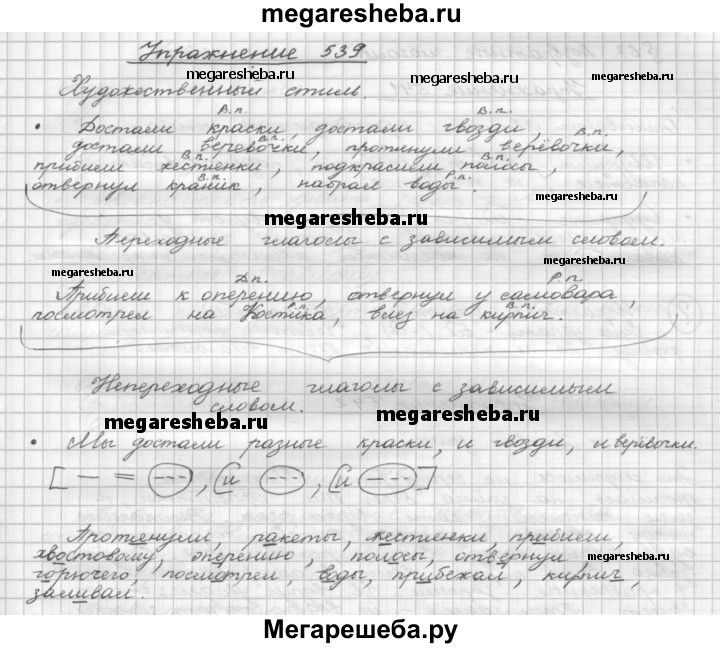 megaresheba.ru
Упражнение 539
megaresheba.ru megaresheba.ru
Художественный стиль.
В.п. В.п.
• Достали краски, достали гвозди,
В.п. В.п.
достали верёвочки, протянули верёвочки,
В.п. В.п.
прибили жестянки, подкрасили полосы,
В.п. Р.п.
отвернул краник, набрал воды.
megaresheba.ru
megaresheba.ru
Переходные глаголы с зависимым словом.
megaresheba.ru
megaresheba.ru
Д.п. Р.п.
Прибили к оперению, отвернул у самовара,
Р.п. В.п.
посмотрел на Костика, влез на кирпич.
Непереходные глаголы с зависимым
словом.
megaresheba.ru megaresheba.ru
• Мы достали разные краски, и гвозди, и верёвочки.
[ — = , и , и ]
Протянули, ракеты, жестянки, прибили,
хвостовому, оперению, полосы, отвернул,
megaresheba.ru
горючего, посмотрел, воды, прибежал, кирпич,
заливал.
megaresheba.ru
Мегарешеба.ру